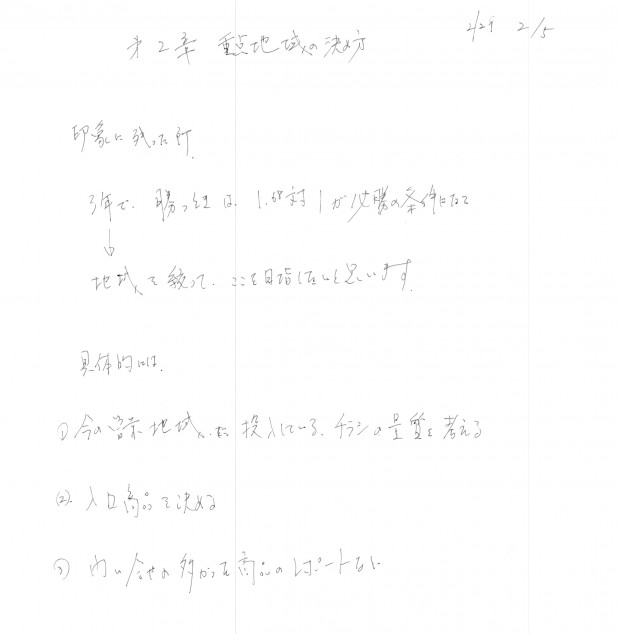 2/29 2/5
第2章 重点地域の決め方
印象に残った所.
3年で、勝つには、1.68対1が必勝の条件になって
↓
地域を絞って、ここを目指したいと思います.
具体的には、
① 今の 地域に投入している、チラシの量質を考える
②. 入口商品を決める
③ 問い合せの多かった商品のレポートなど